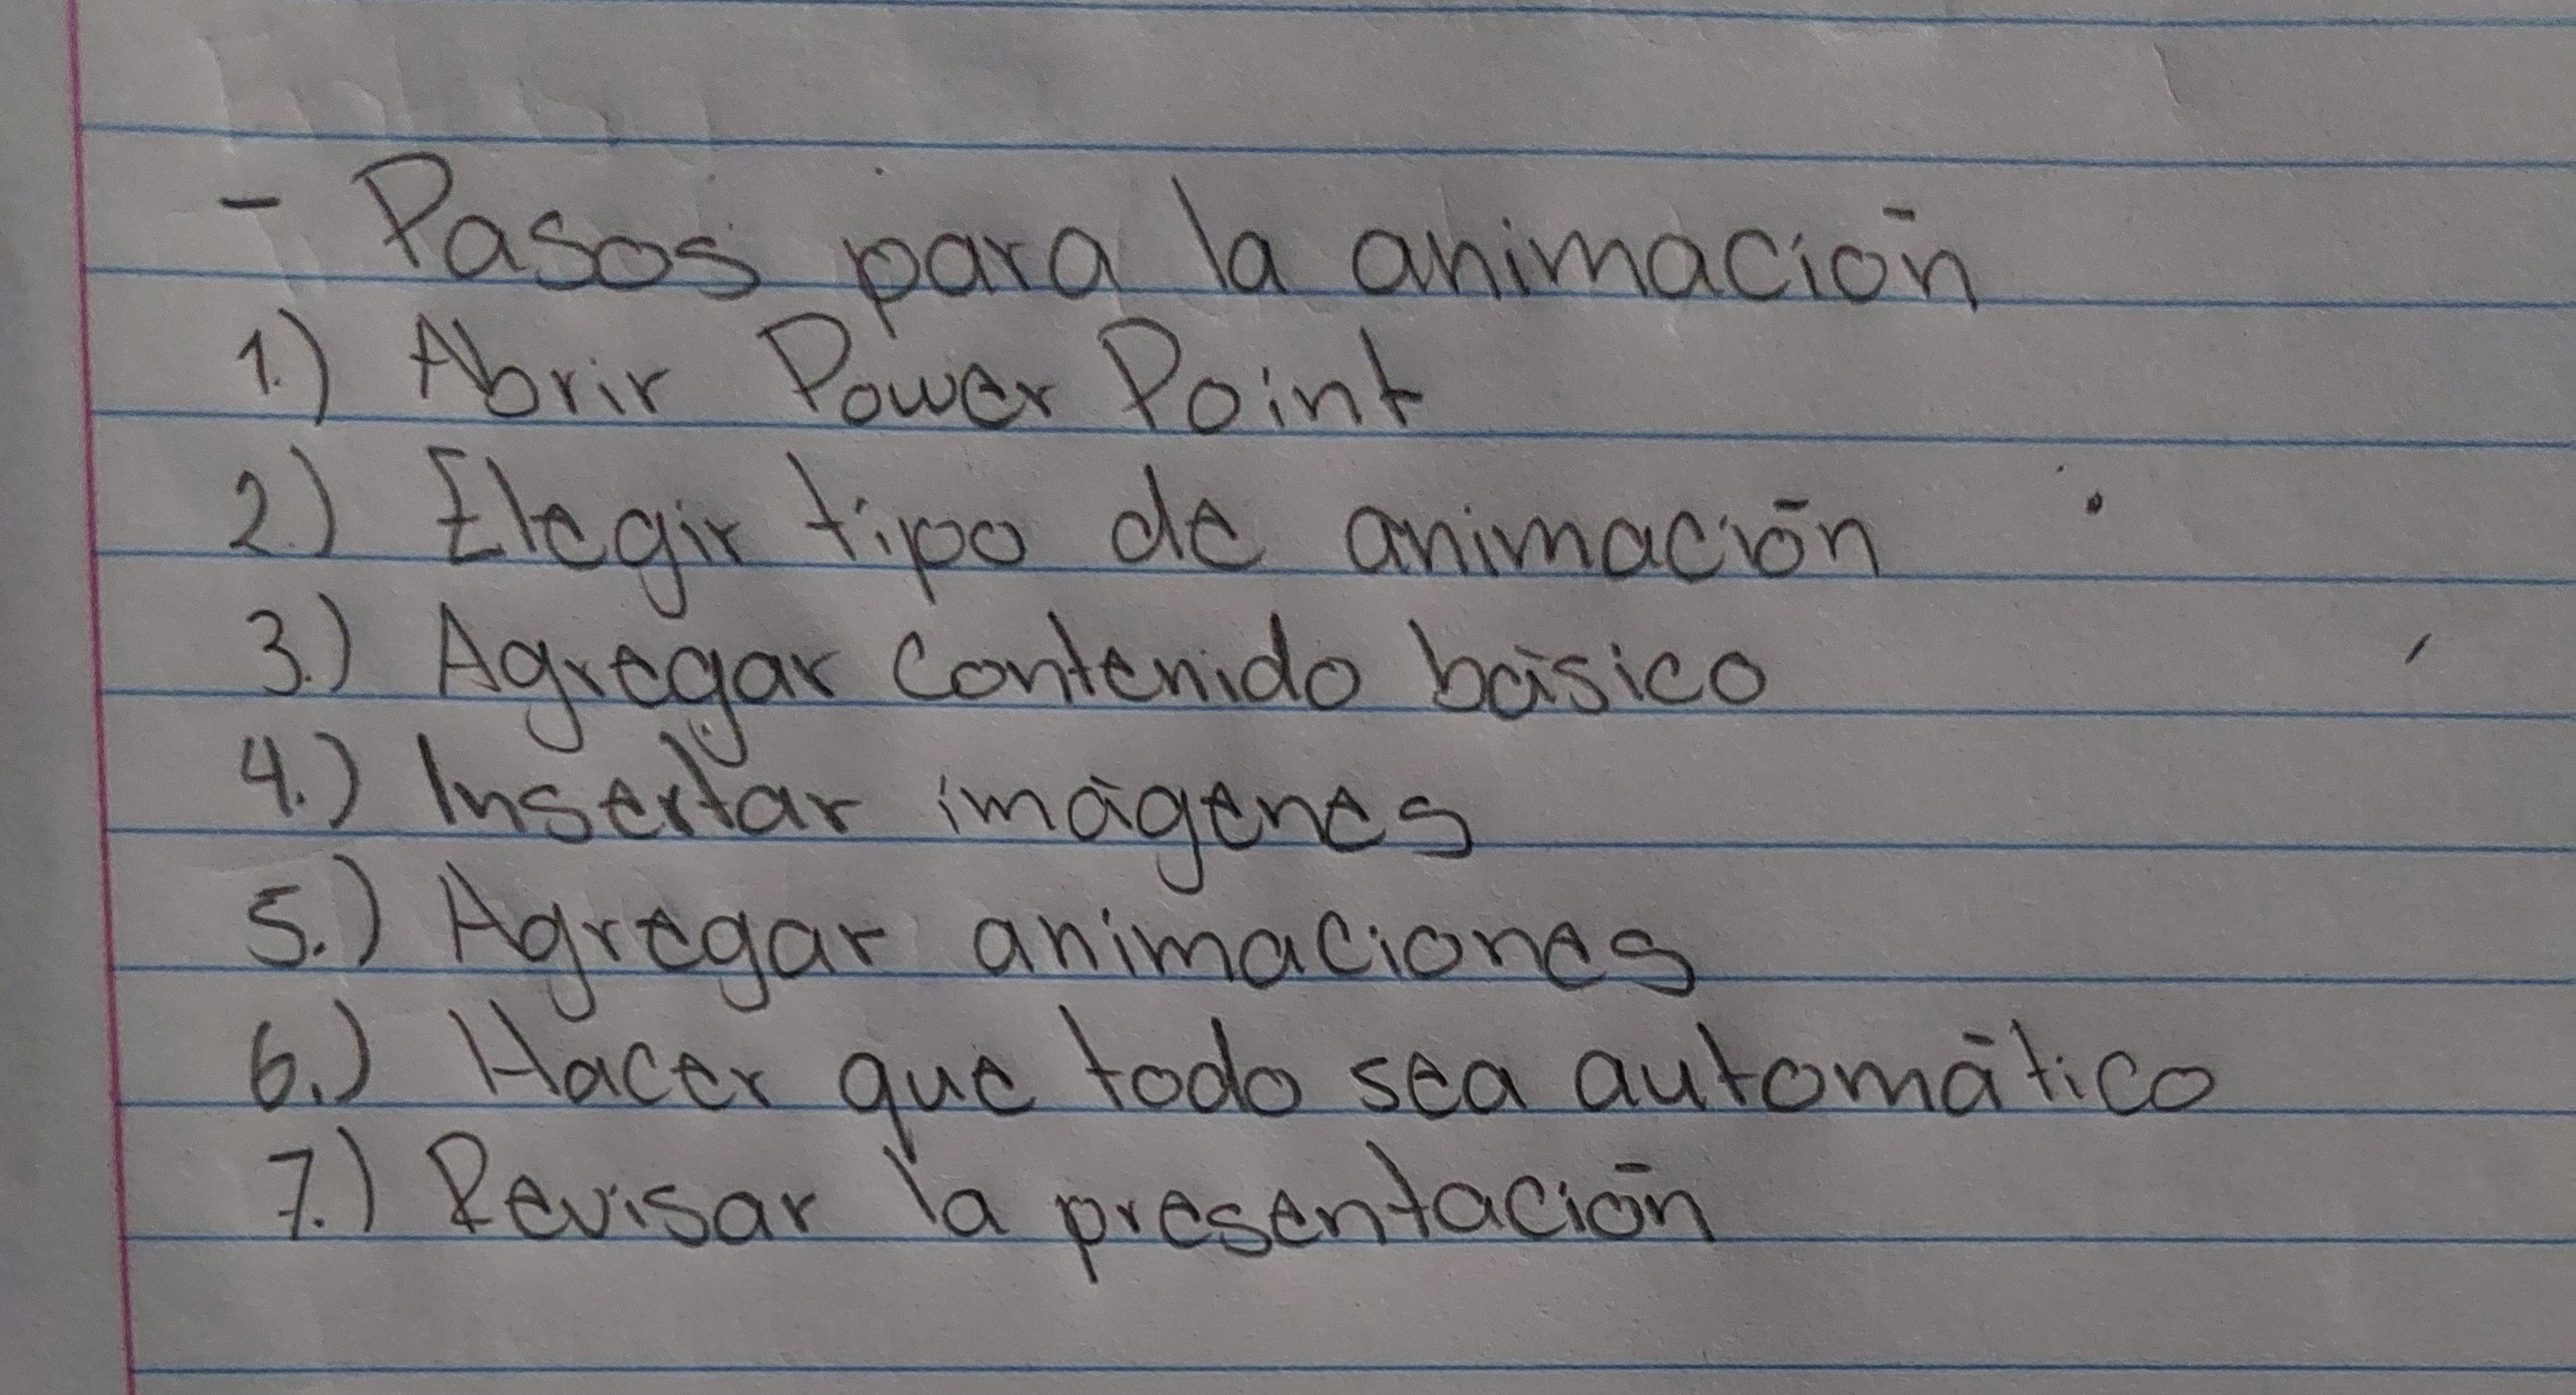 - Pasos para la animación
1.) Abrir Power Point
2.) Elegir tipo de animación
3.) Agregar contenido básico
4.) Insertar imágenes
5.) Agregar animaciones
6.) Hacer que todo sea automático
7.) Revisar la presentación